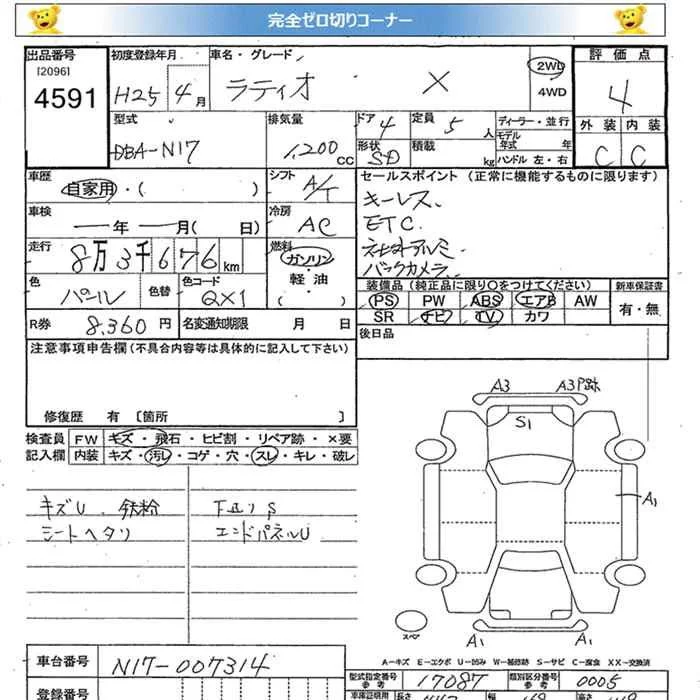 完全ゼロ切りコーナー
出品番号 初度登録年月 車名・グレード 評価点
[2096]
4591 H25 4月 ラティオ X 2WD 4WD 4
型式 排気量 ドア 4 定員 5 人 ディーラー・並行 外装 内装
DBA-N17 1,200 CC 形状 SD 積載 kg モデル年式 年 ハンドル 左・右 C C
車歴 シフト A/T セールスポイント (正常に機能するものに限ります)
自家用・( ) キーレス、
車検 年 月( 日) 冷房 AC ETC、
走行 8万3千676km 燃料 ガソリン・軽油 ( )
バックカメラ、
色 パール 色替 色コード QX1
装備品 (純正品に限り○をつけてください) 新車保証書
PS PW ABS エアB AW 有・無
SR ナビ TV カワ
R券 8,360円 名変通知期限 月 日 後日品
注意事項申告欄(不具合内容等は具体的に記入して下さい)
修復歴 有 [箇所 ]
検査員 FW キズ・飛石・ヒビ割・リペア跡・×要
記入欄 内装 キズ・汚レ・コゲ・穴・スレ・キレ・破レ
キズU、鉄粉 下回りS
シートヘタリ エンドパネルU
A3 A3P跡
S1
A1
スペア A1 A1
A-キズ E-エクボ U-凹み W-補修跡 S-サビ C-腐食 XX-交換済
車台番号 N17-007314
型式指定番号 参考 17087 類別区分番号 参考 0005
登録番号 車庫証明用 長さ 幅 高さ